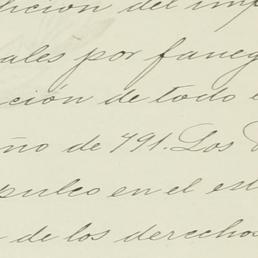 dicion del imp
ales por faneg
ción de todo e
ño de 791. Los
pulco en el est
de los derechos